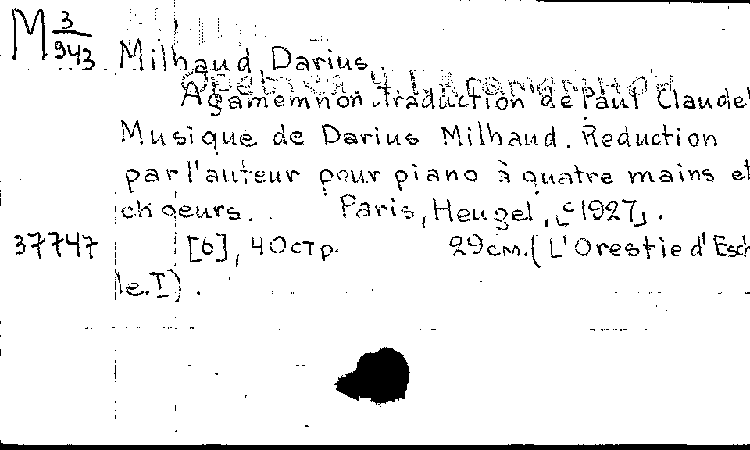 M 3/943 Milhaud Darius.
Agamemnon. traduction de Paul Claudel
Musique de Darius Milhaud. Reduction
par l'auteur pour piano à quatre mains et
ch oeurs. Paris, Heugel, c1927.
37747 [6], 40стр. 29см. (L'Orestie d'Esch
le. I).